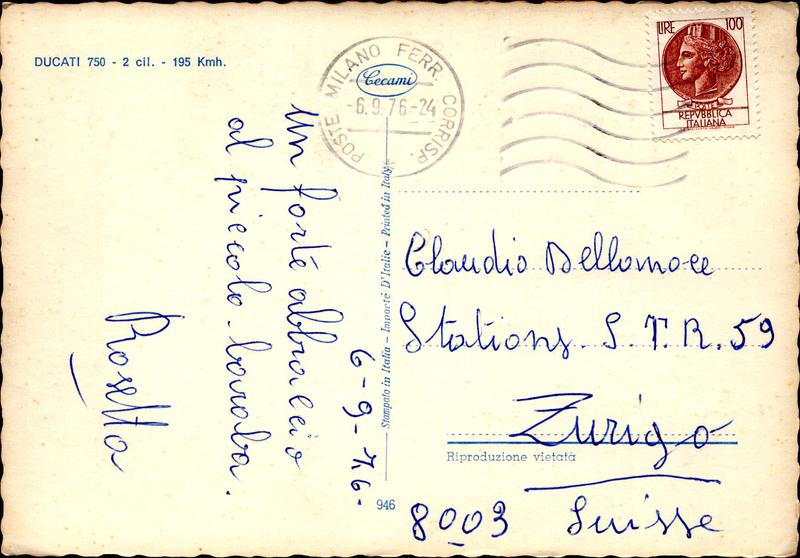 DUCATI 750 - 2 cil. - 195 Kmh.
Un forte abbraccio
al piccolo baraba.
Rosetta
6-9-76.
Stampato in Italia - Importé D'Italie - Printed in Italy
946
Cecami
POSTE MILANO FERR. CORRISP.
-6.9.76-24
LIRE 100
POSTE
REPVBBLICA
ITALIANA
Claudio Bellomoce
Stations. S.T.R. 59
Zurigo
Riproduzione vietata
8003 Suisse